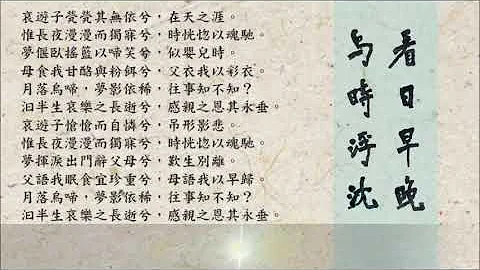 哀遊子煢煢其無依兮，在天之涯。
惟長夜漫漫而獨寐兮，時恍惚以魂馳。
夢偃臥搖籃以啼笑兮，似嬰兒時。
母食我甘酪與粉餌兮，父衣我以彩衣。
月落烏啼，夢影依稀，往事知不知？
汩半生哀樂之長逝兮，感親之恩其永垂。
哀遊子愴愴而自憐兮，吊形影悲。
惟長夜漫漫而獨寐兮，時恍惚以魂馳。
夢揮淚出門辭父母兮，歎生別離。
父語我眠食宜珍重兮，母語我以早歸。
月落烏啼，夢影依稀，往事知不知？
汩半生哀樂之長逝兮，感親之恩其永垂。
看日早晚
与時浮沈